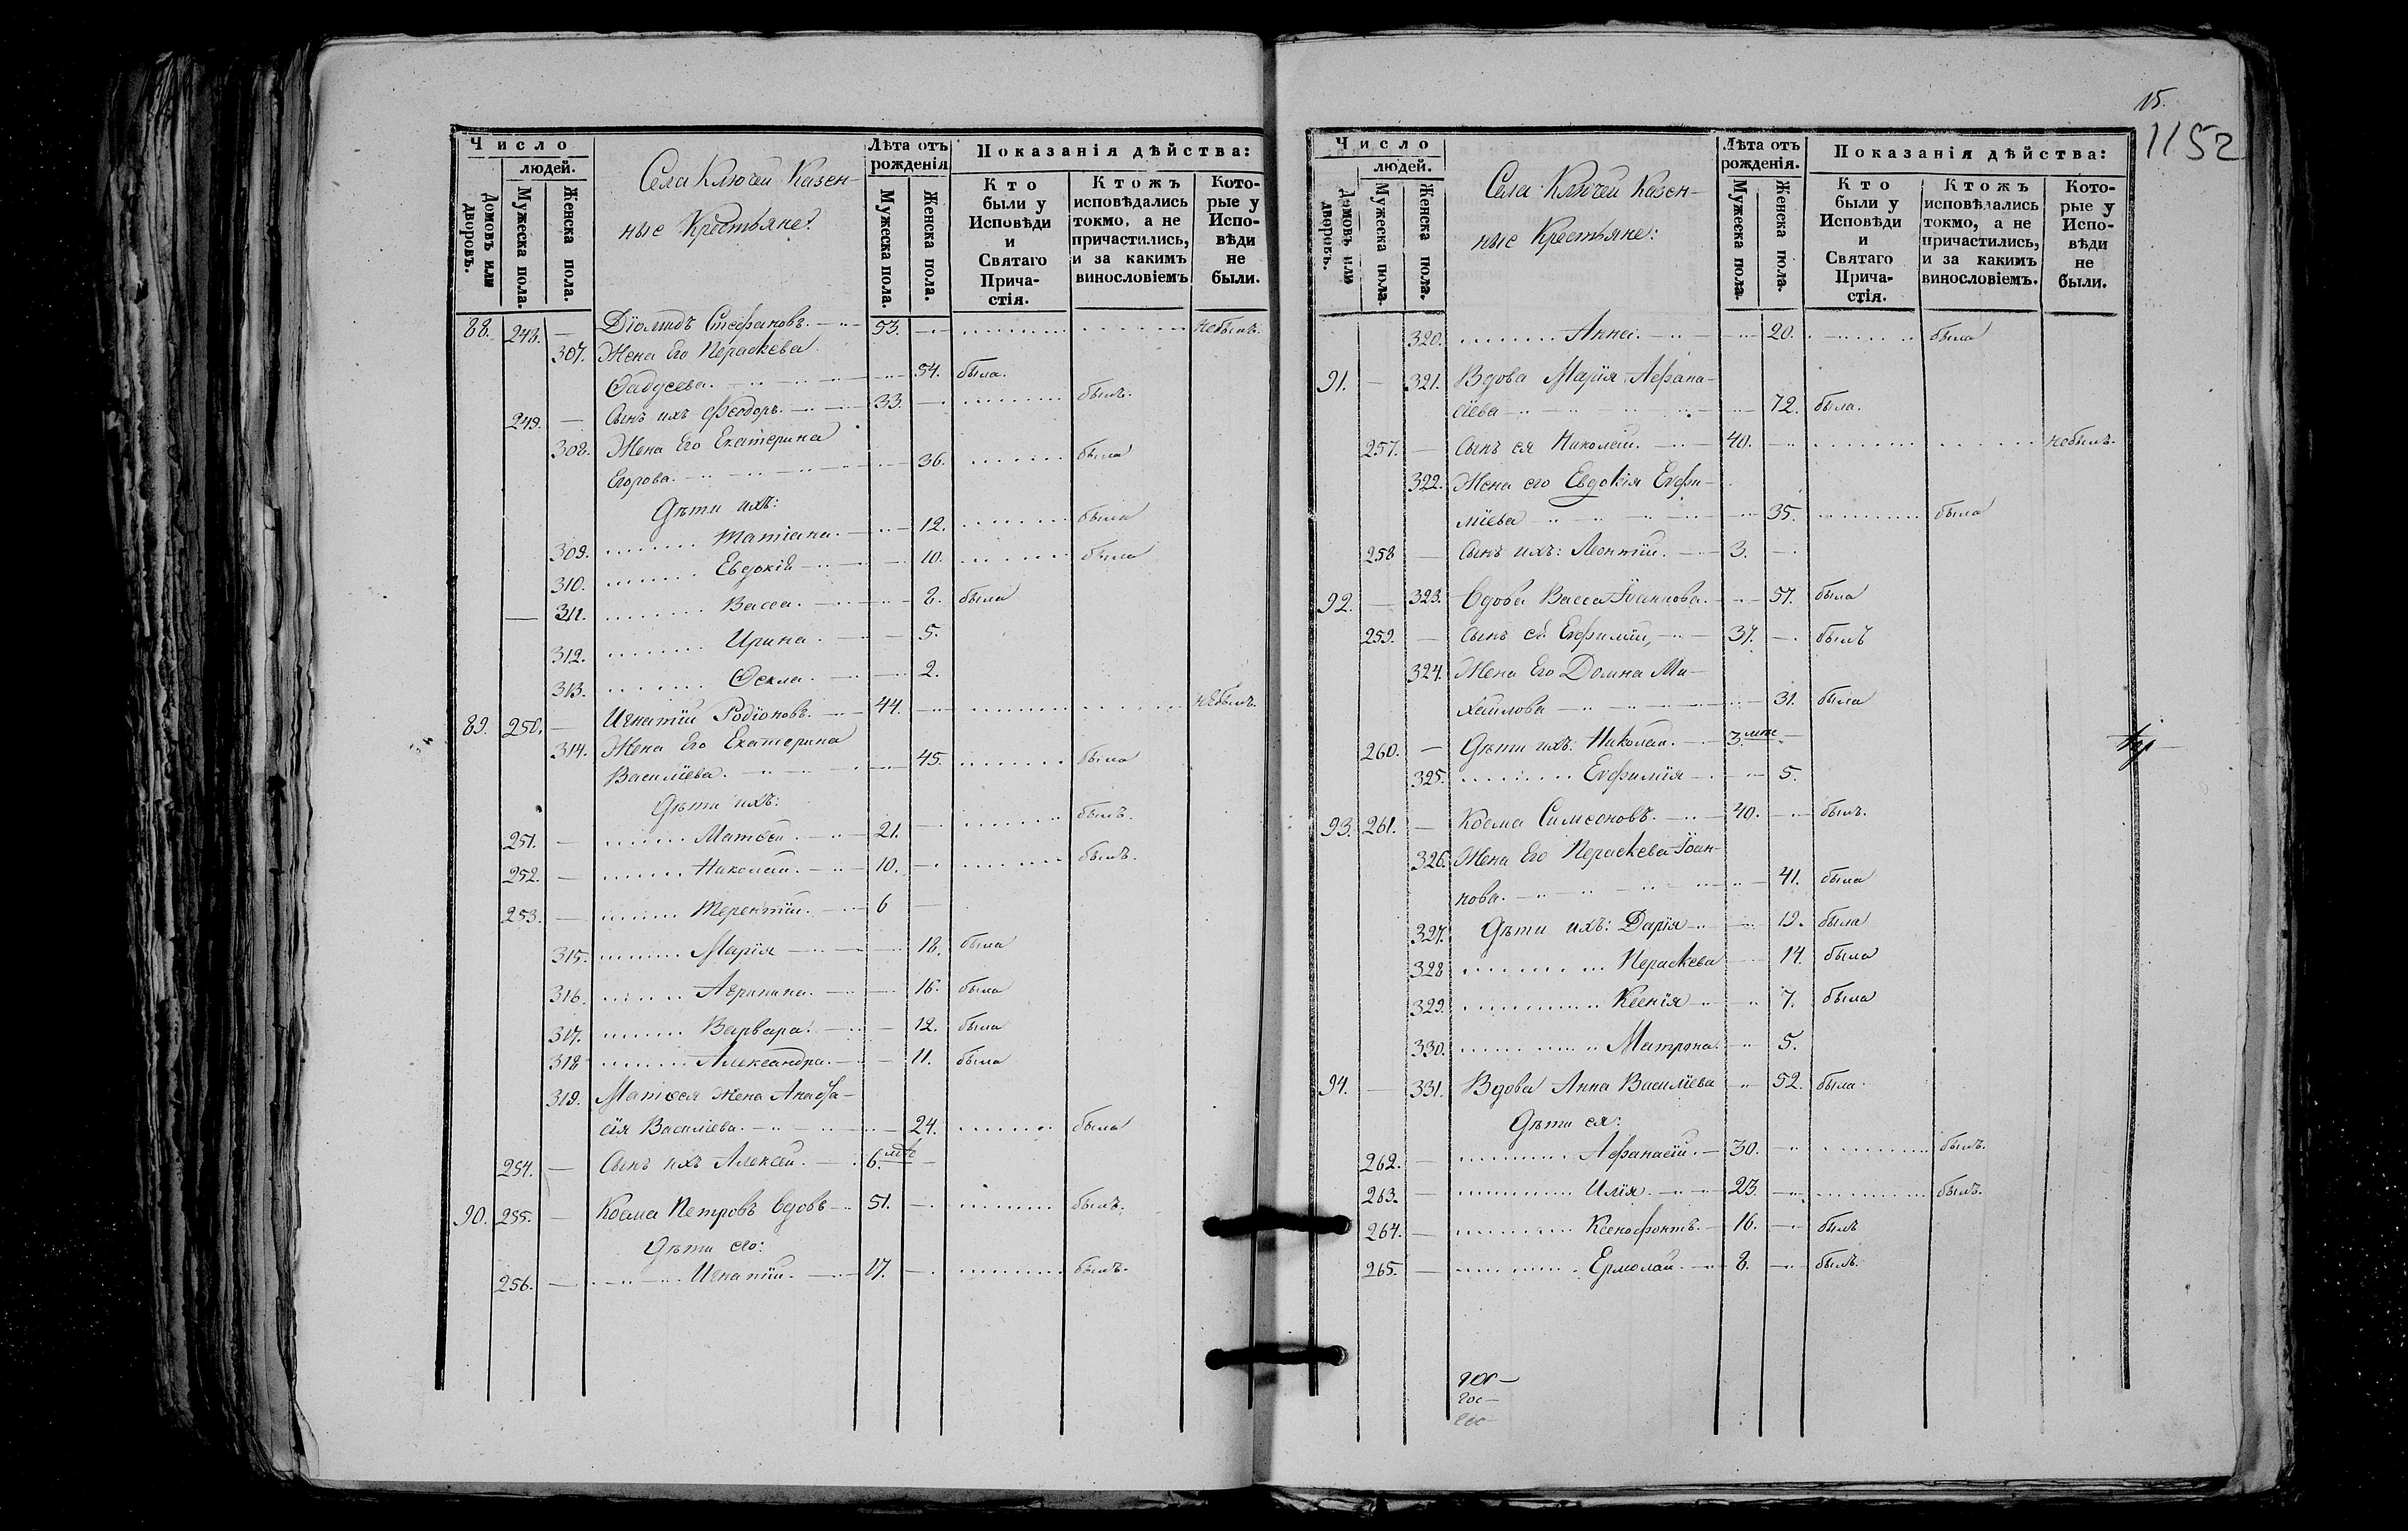 Число
людей.
Домовъ или дворовъ.
Мужеска пола.
Женска пола.
Села Ключей Казен-
ные Крестьяне:
Лѣта отъ рожденія
Мужеска пола.
Женска пола.
Показанія дѣйства:
Кто были у Исповѣди и Святаго Прича-стія.
Ктожъ исповѣдались токмо, а не причастились, и за какимъ винословіемъ
Кото-рые у Испо-вѣди не были.
88. 248. — Діомидъ Стефановъ. 53. — небылъ.
307. Жена Его Параскева
Фадѣева. 54. была.
249. — Сынъ ихъ Феодоръ. 33. — былъ.
308. Жена Его Екатерина
Егорова. 36. была
Дѣти ихъ:
309. Татіана. 12. была
310. Евдокія 10. была
311. Васса. 8. была
312. Ирина. 5.
313. Фекла. 2.
89. 250. — Игнатій Родіоновъ. 44. — небылъ.
314. Жена Его Екатерина
Василіева. 45. была
Дѣти ихъ:
251. — Матѳей. 21. — былъ.
252. — Николай. 10. — былъ.
253. — Терентій. 6 —
315. Марія 18. была
316. Агрипина. 16. была
317. Варвара. 12. была
318 Александра. 11. была
319. Матѳея Жена Анаста-
сія Василіева. 24. была
254. — Сынъ ихъ Алексей. 6. мѣс —
90. 255. — Косма Петровъ вдовъ 51. — былъ.
Дѣти его:
256. — Игнатій. 17. — былъ.
15.
1152
Число
людей.
Домовъ или дворовъ.
Мужеска пола.
Женска пола.
Села Ключей Казен-
ные Крестьяне:
Лѣта отъ рожденія.
Мужеска пола.
Женска пола.
Показанія дѣйства:
Кто были у Исповѣди и Святаго Прича-стія.
Ктожъ исповѣдались токмо, а не причастились, и за какимъ винословіемъ.
Кото-рые у Испо-вѣди не были.
320. Анна. 20. была
91. — 321. Вдова Марія Афана-
сіева 72. была.
257. — Сынъ ея Николай. 40. — небылъ.
322. Жена его Евдокія Евфи-
міева 35. была
258 — Сынъ ихъ: Леонтій. 3. —
92. — 323. Вдова Васса Іоаннова. 57. была
259. — Сынъ ея Евфимій, 37. — былъ
324. Жена Его Домна Ми-
хайлова 31. была
260. — Дѣти ихъ: Николай. 3. мѣс —
325. Евфимія 5.
93. 261. — Косма Симеоновъ. 40. — былъ.
326. Жена Его Параскева Іоан-
нова. 41. была
327. Дѣти ихъ: Дарія 19. была
328 Параскева 14. была
329. Ксенія 7. была
330. Матрона 5.
94. — 331. Вдова Анна Василіева 52. была.
Дѣти ея:
262. — Афанасій. 30. — былъ.
263. — Илія. 23. — былъ.
264. — Ксенофонтъ. 16. — былъ
265. — Ермолай. 8. — былъ.